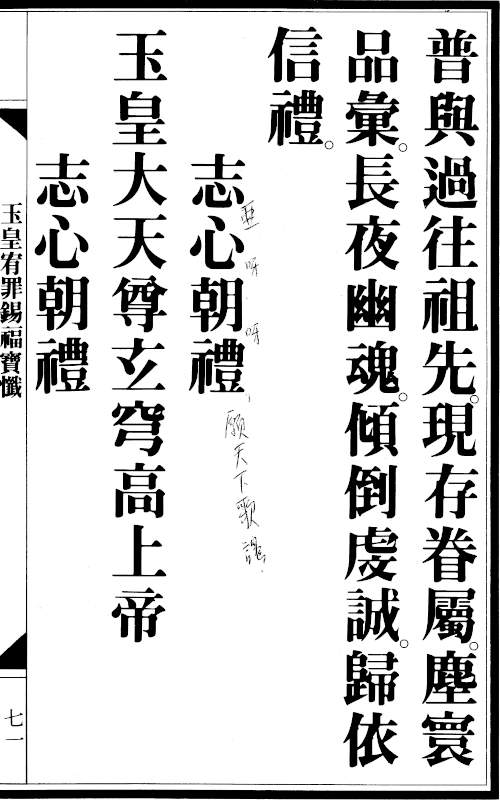 普與過往祖先。現存眷屬。塵寰
品彙。長夜幽魂。傾倒虔誠。歸依
信禮。
志心朝禮
呀 呀
願天下歌謠
玉皇大天尊玄穹高上帝
志心朝禮
玉皇宥罪錫福寶懺
七一